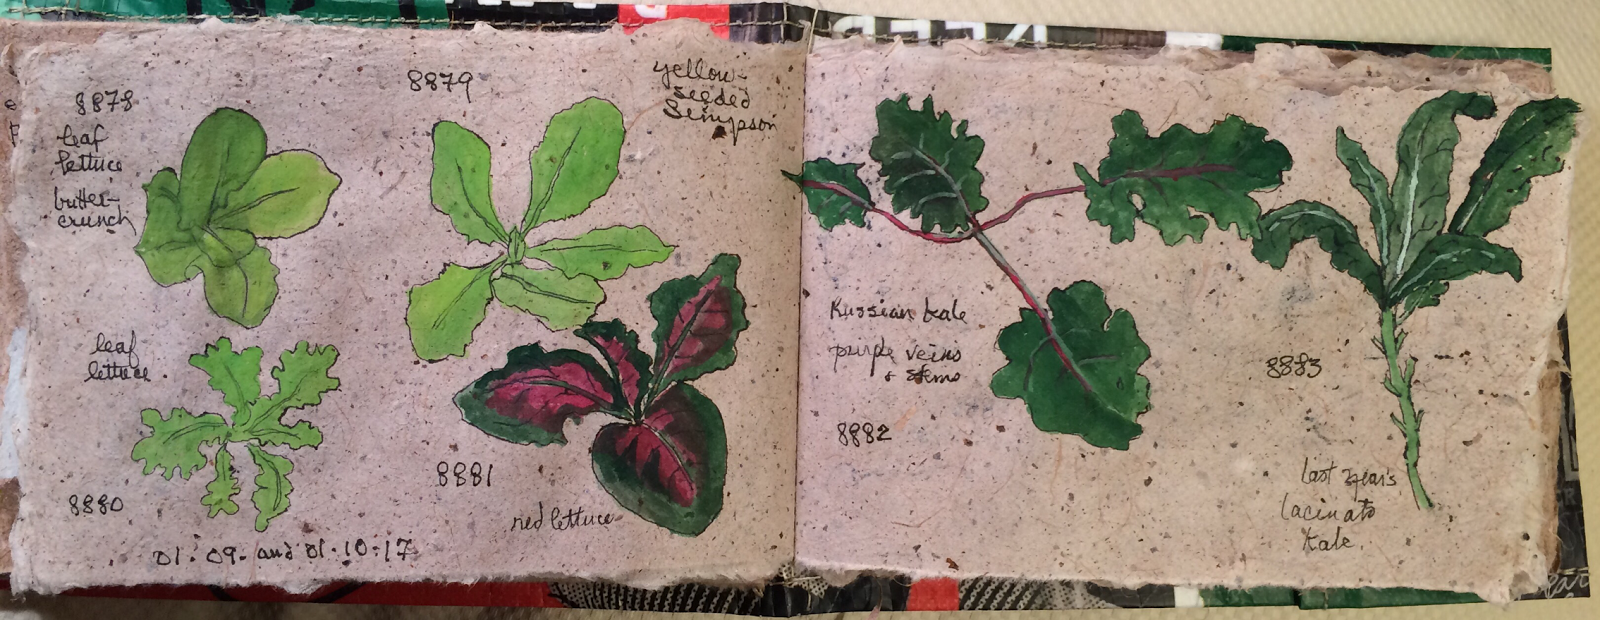 8878
leaf
lettuce
butter-
crunch
8879
yellow-
seeded
Simpson
leaf
lettuce.
8880
8881
red lettuce
01.09. and 01.10.17
Russian kale
purple veins
+ stems
8882
8883
last year's
lacinato
kale.